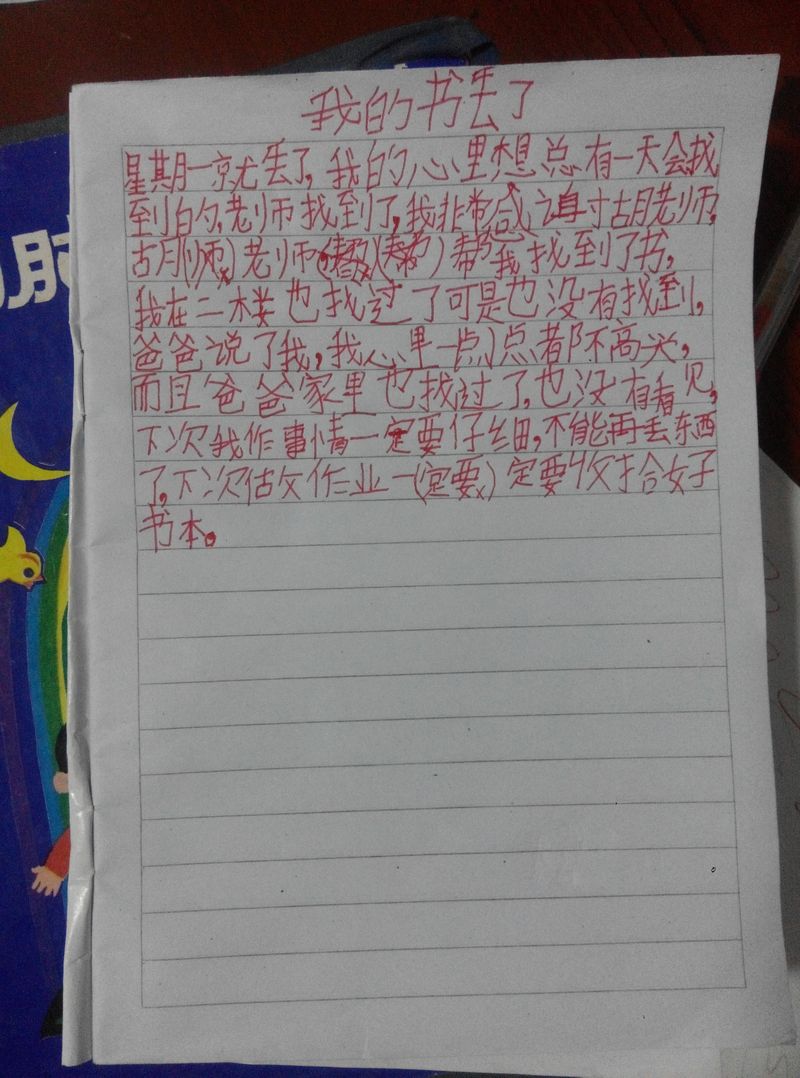 我的书丢了
星期一就丢了,我的心里想总有一天会找
到的,老师找到了,我非常感谢胡老师,
胡(师)老师(帮)(帮)帮我找到了书,
我在二楼也找过了可是也没有找到,
爸爸说了我,我心里一点点都不高兴,
而且爸爸家里也找过了,也没有看见,
下次我作事情一定要仔细,不能再丢东西
了,下次做作业一(定要)定要收拾好
书本。